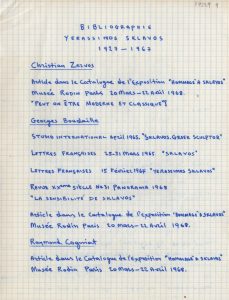 BIBLIOGRAPHIE
YERASSIMOS SKLAVOS
1927-1967
Christian Zervos
Article dans le Catalogue de l'Exposition "HOMMAGE À SKLAVOS"
Musée Rodin Paris 20 Mars-22 Avril 1968.
"PEUT ON ÊTRE MODERNE ET CLASSIQUE"
Georges Boudaille
STUDIO INTERNATIONAL April 1965. "SKLAVOS, GREEK SCULPTOR"
LETTRES FRANÇAISES 25-31 MARS 1965 "SKLAVOS"
LETTRES FRANÇAISES 15 Février 1967 "YERASSIMOS SKLAVOS"
REVUE XXème SIÈCLE No 31 PANORAMA 1968
"LA SENSIBILITÉ DE SKLAVOS"
Article dans le Catalogue de l'Exposition "HOMMAGE À SKLAVOS"
Musée Rodin Paris 20 Mars-22 Avril 1968.
Raymond Cogniat
Article dans le Catalogue de l'Exposition "HOMMAGE À SKLAVOS"
Musée Rodin Paris 20 Mars-22 Avril 1968.